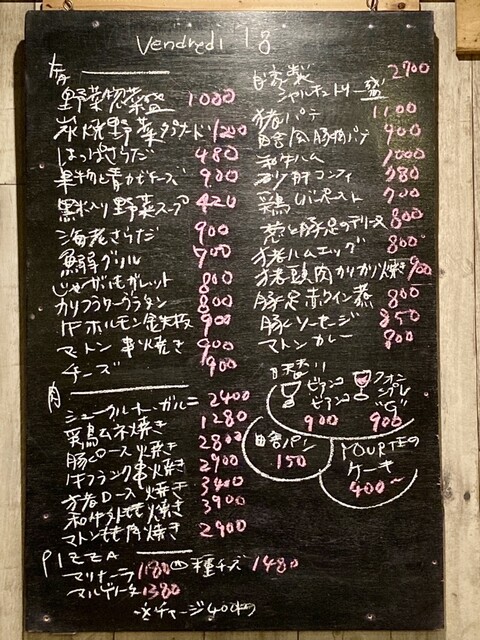 Vendredi 18
野菜惣菜盛 1080
炭焼野菜タプナード 1200
はっぱさらだ 480
果物と青かびチーズ 900
黒米入り野菜スープ 420
海老さらだ 900
グリル 700
じゃがいもガレット 800
カリフラワーグラタン 800
牛ホルモン鉄板 900
マトン串焼き 900
チーズ 900
肉
シュークルートガルニ 2400
鶏ムネ焼き 1280
豚ロース焼き 2800
牛フランク串焼き 2900
猪ロース焼き 3400
和牛外もも焼き 3900
マトンもも肉焼き 2900
PIZZA
マリナーラ 1180
マルゲリータ 1380
四種チーズ 1480
席チャージ400円
自家製
シャルキュトリー盛 2700
猪パテ 1100
田舎風豚肉パテ 900
和牛ハム 1000
砂肝コンフィ 380
鶏レバーペースト 700
葱と豚足のテリーヌ 800
猪ハムエッグ 800
猪頭肉カリカリ焼き 900
豚足赤ワイン煮 800
豚ソーセージ 850
マトンカレー 800
日替り
ビアンコ
ビアンコ
900
フォン
シンプレ
"G"
900
田舎パン
150
YOURTEの
ケーキ
400~